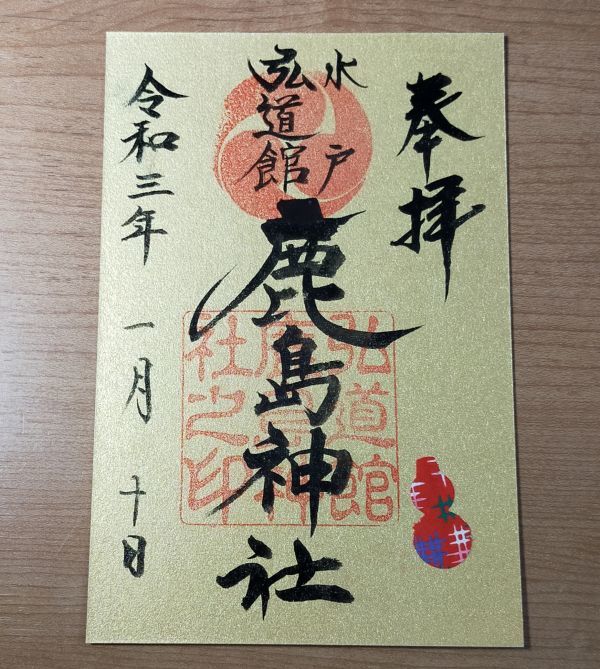 奉拝
水戸
弘道館
鹿島神社
弘道館
鹿島神
社之印
令和三年 一月 十日